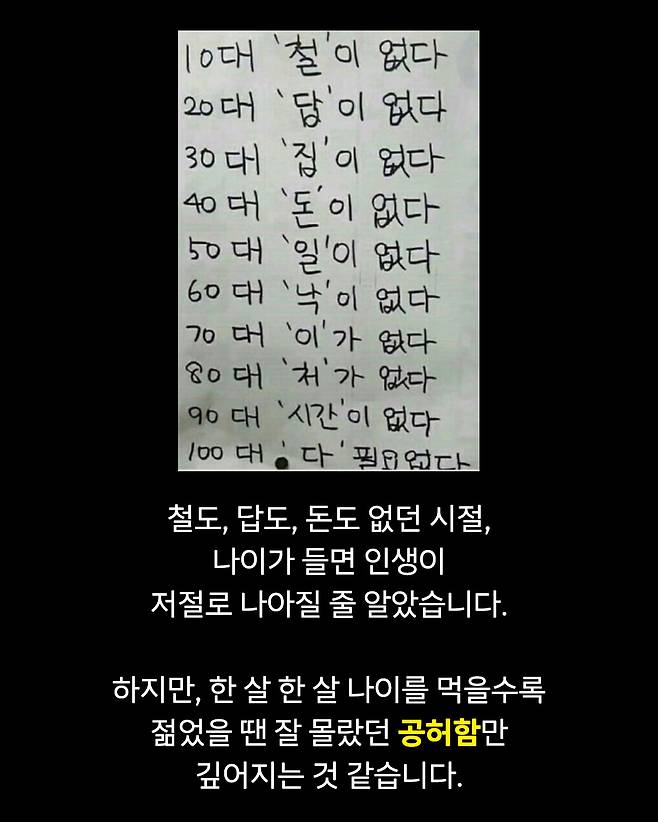 10대 '철'이 없다
20대 '답'이 없다
30대 '집'이 없다
40대 '돈'이 없다
50대 '일'이 없다
60대 '낙'이 없다
70대 '이'가 없다
80대 '처'가 없다
90대 '시간'이 없다
100대 '다' 필요없다
철도, 답도, 돈도 없던 시절,
나이가 들면 인생이
저절로 나아질 줄 알았습니다.
하지만, 한 살 한 살 나이를 먹을수록
젊었을 땐 잘 몰랐던 공허함만
깊어지는 것 같습니다.